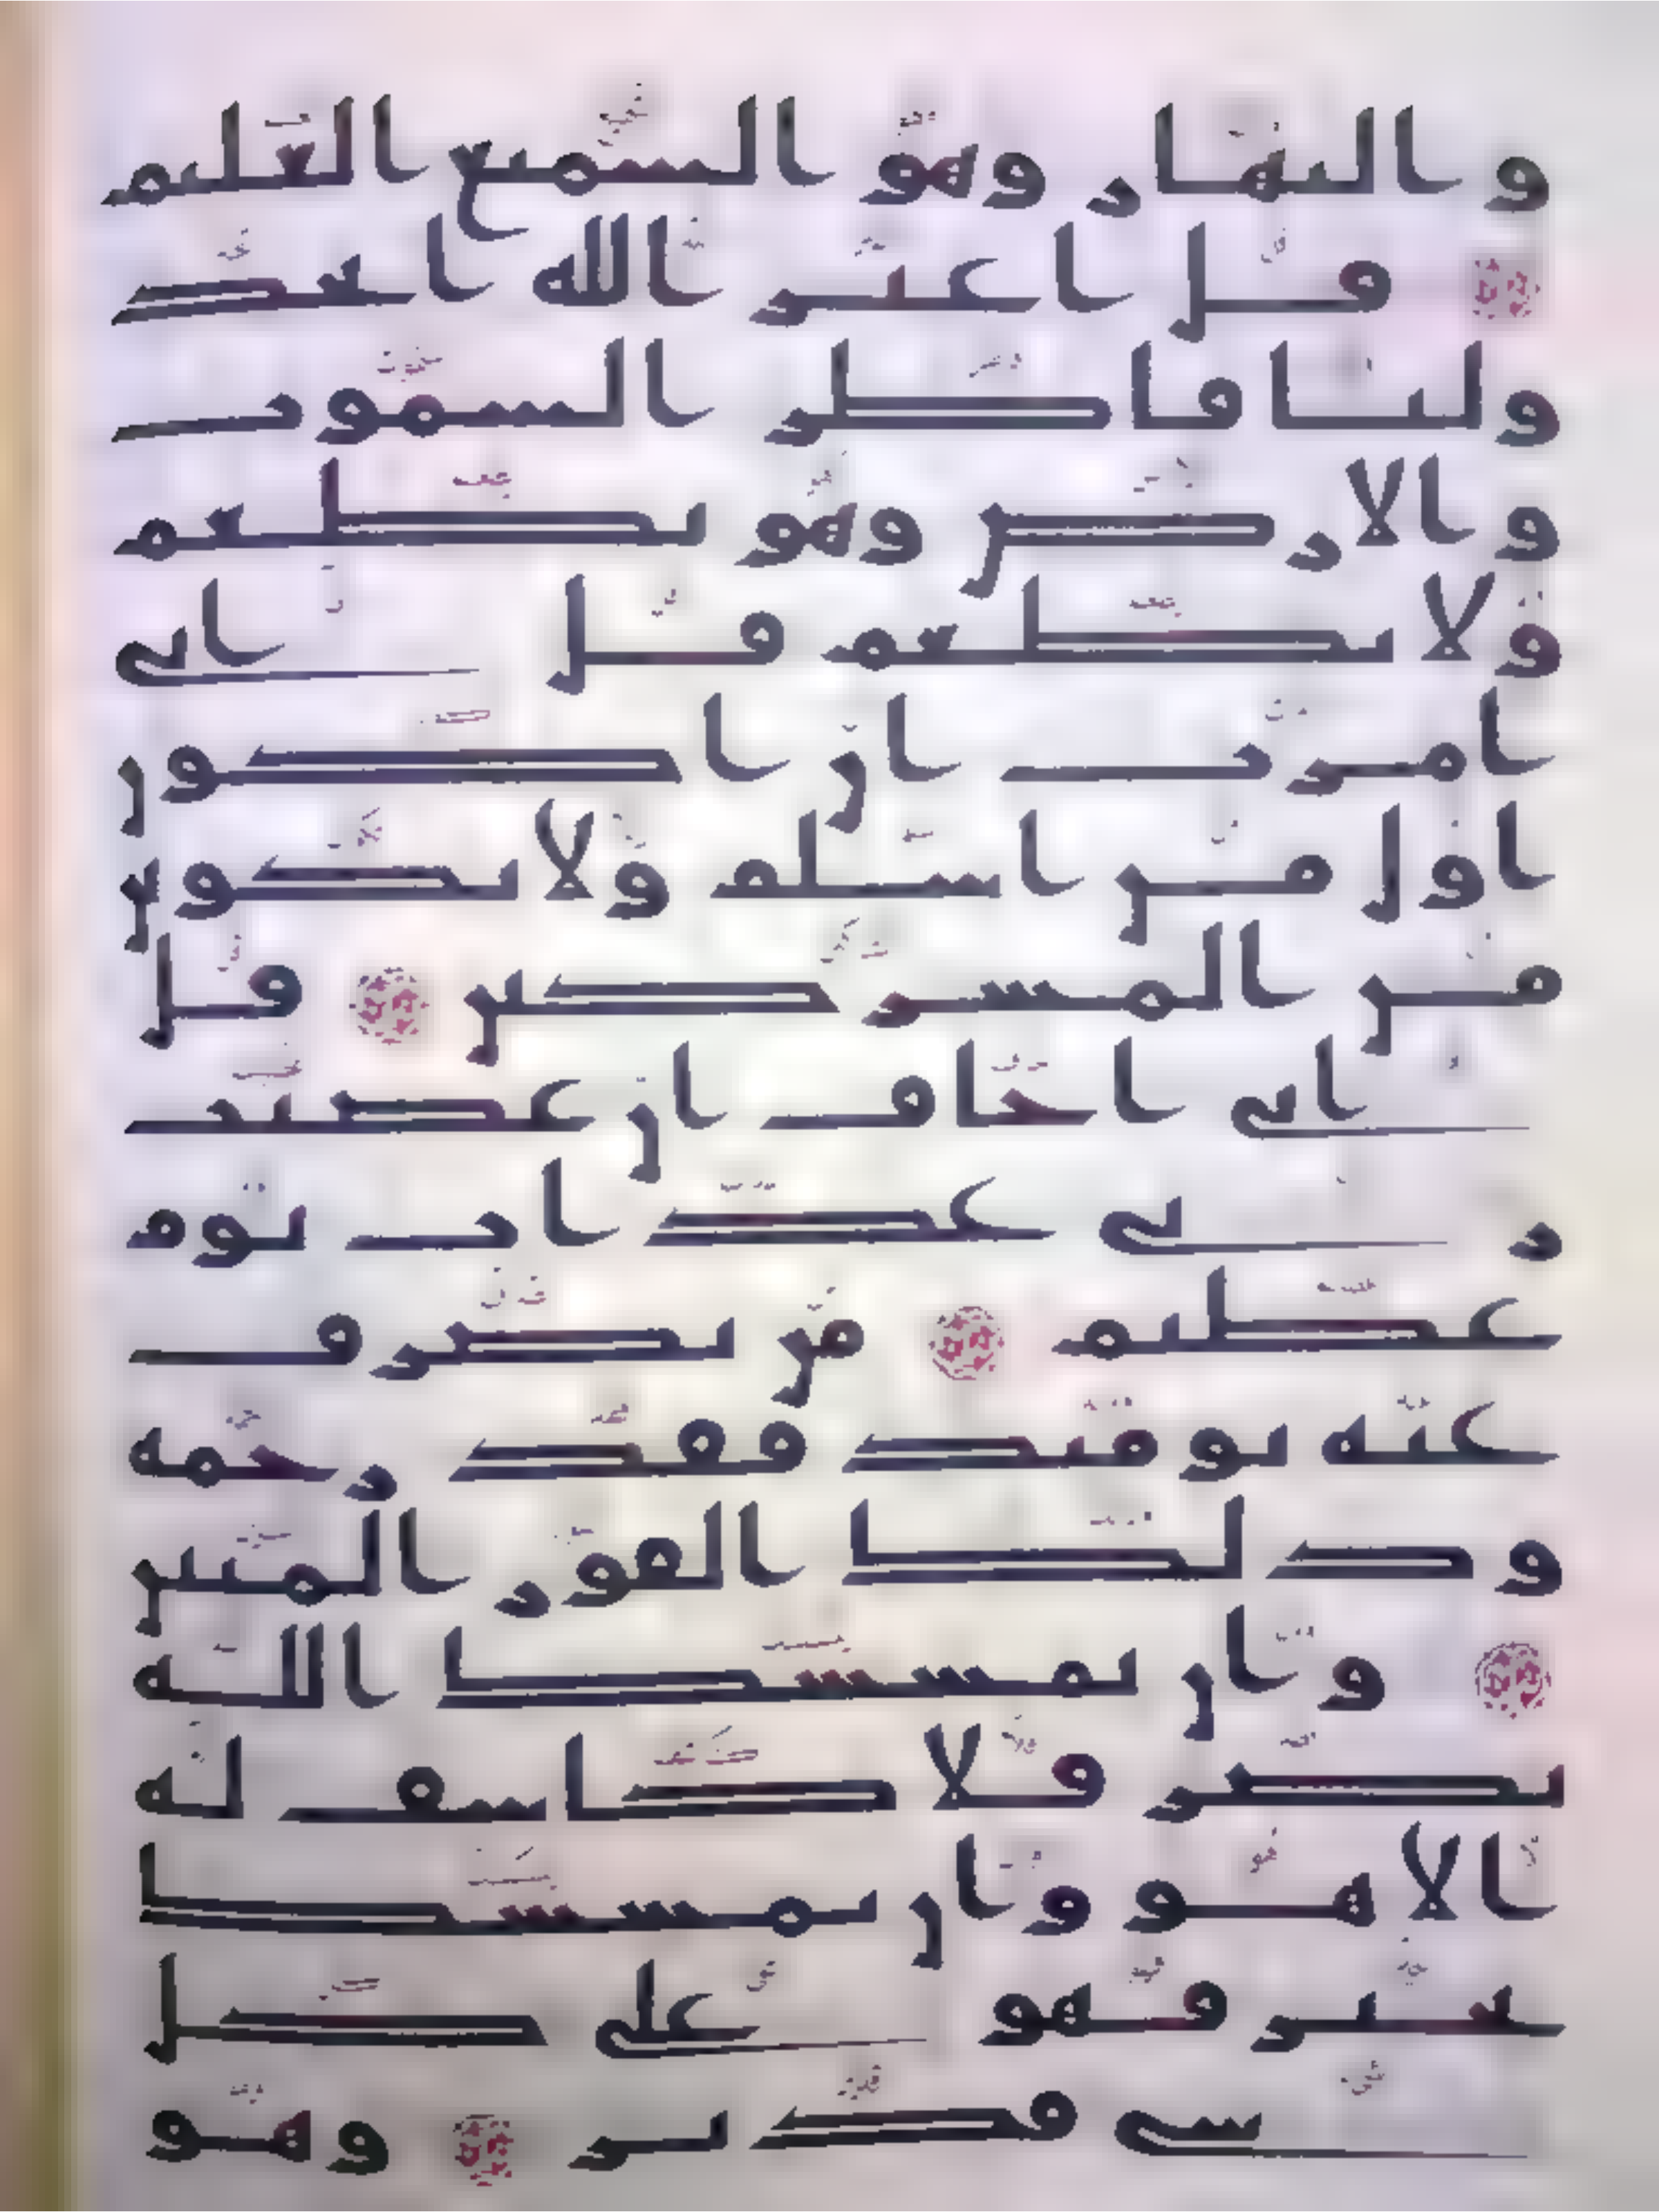 والنهار وهو السميع العليم
قل اغير الله اتخذ
وليا فاطر السموت
والارض وهو يطعم
ولا يطعم قل اني
امرت ان اكون
اول من اسلم ولا تكونن
من المشركين قل
اني اخاف ان عصيت
ربي عذاب يوم
عظيم من يصرف
عنه يومئذ فقد رحمه
وذلك الفوز المبين
وان يمسسك الله
بضر فلا كاشف له
الا هو وان يمسسك
بخير فهو على كل
شي قدير وهو